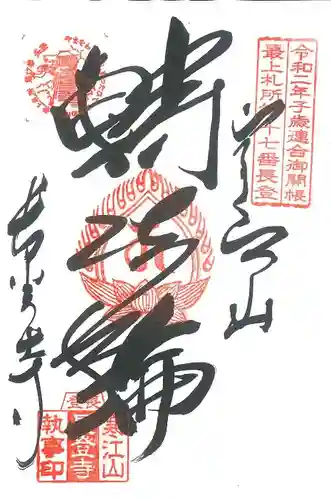 令和二年子歳連合御開帳
最上札所第十七番長登
寒江山
轉法輪
長登寺
寒江山
長登寺
執事印